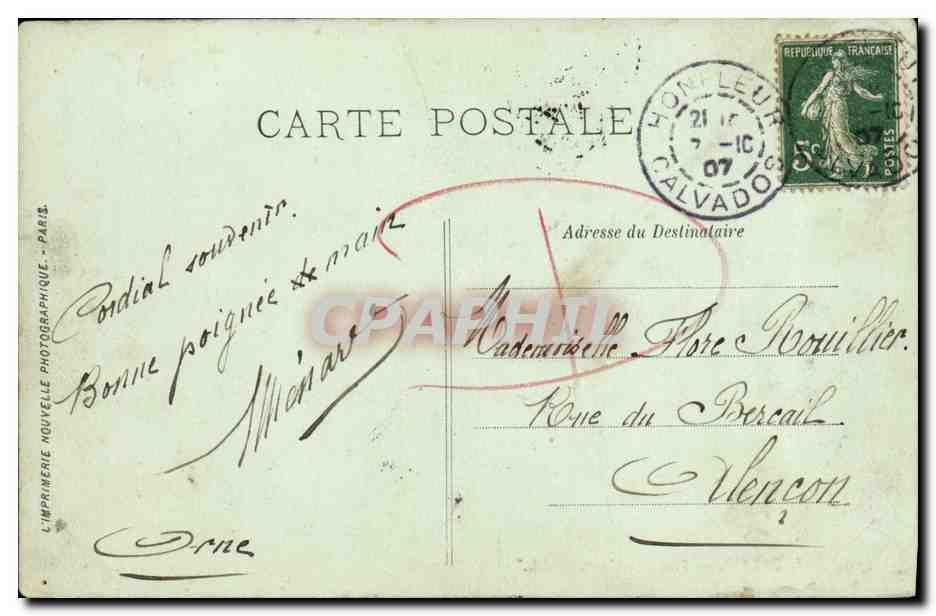 CARTE POSTALE
HONFLEUR
21
7 -10
07
CALVADOS
REPUBLIQUE FRANÇAISE
5c
POSTES
Adresse du Destinataire
Cordial souvenir.
Bonne poignée de main
Ménard
Orne
Mademoiselle Flore Rouillier.
Rue du Bercail.
Alençon
L'IMPRIMERIE NOUVELLE PHOTOGRAPHIQUE. - PARIS.
CPAPHIL